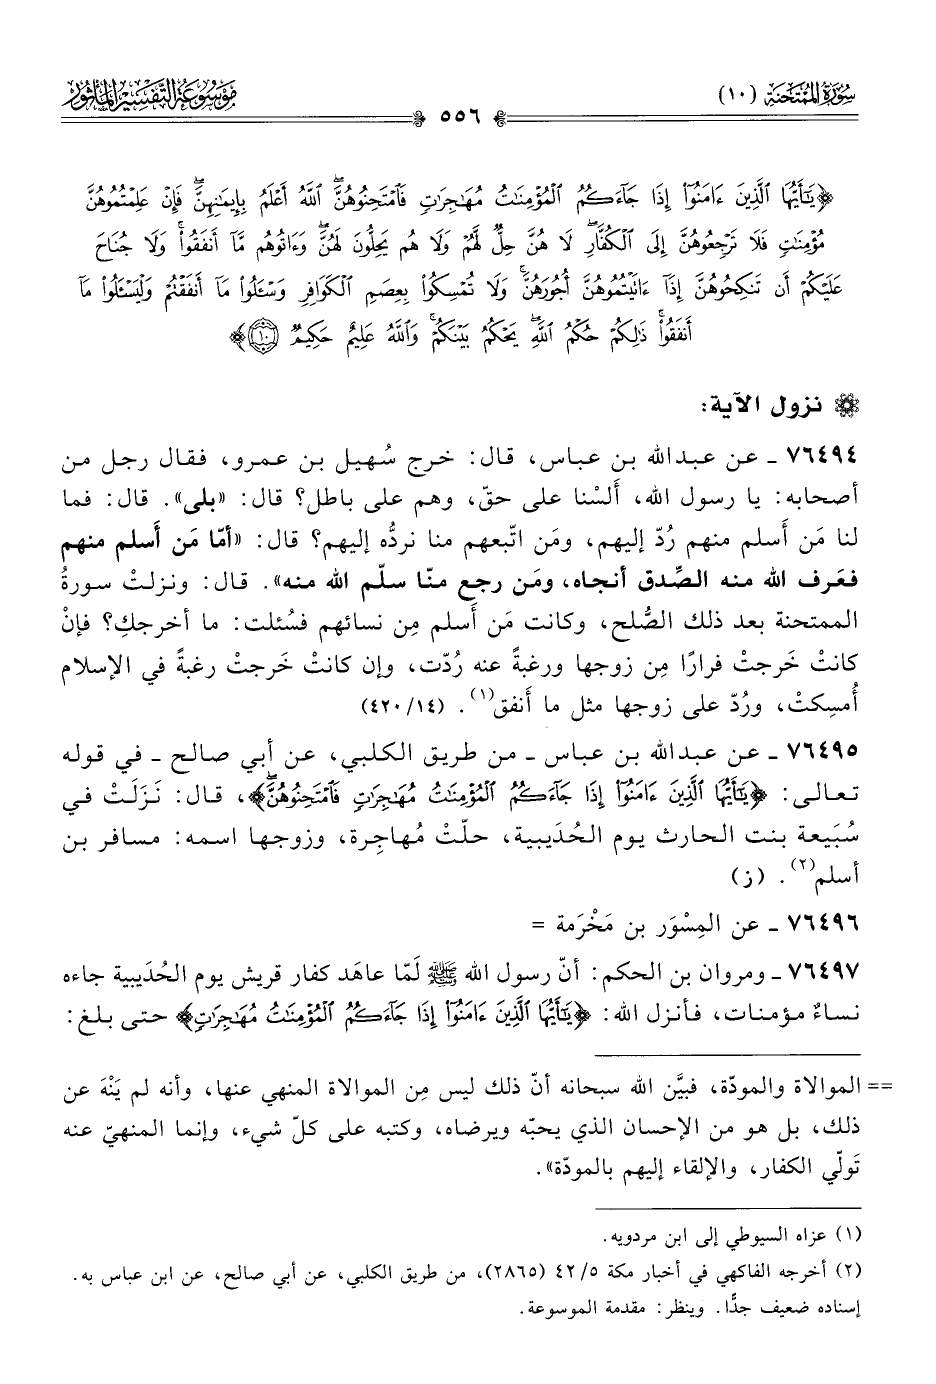 سورة الممتحنة (١٠)
٥٥٦
موسوعة التفسير المأثور
﴿يَٰٓأَيُّهَا ٱلَّذِينَ ءَامَنُوٓاْ إِذَا جَآءَكُمُ ٱلۡمُؤۡمِنَٰتُ مُهَٰجِرَٰتٖ فَٱمۡتَحِنُوهُنَّۖ ٱللَّهُ أَعۡلَمُ بِإِيمَٰنِهِنَّۖ فَإِنۡ عَلِمۡتُمُوهُنَّ
مُؤۡمِنَٰتٖ فَلَا تَرۡجِعُوهُنَّ إِلَى ٱلۡكُفَّارِۖ لَا هُنَّ حِلّٞ لَّهُمۡ وَلَا هُمۡ يَحِلُّونَ لَهُنَّۖ وَءَاتُوهُم مَّآ أَنفَقُواْۚ وَلَا جُنَاحَ
عَلَيۡكُمۡ أَن تَنكِحُوهُنَّ إِذَآ ءَاتَيۡتُمُوهُنَّ أُجُورَهُنَّۚ وَلَا تُمۡسِكُواْ بِعِصَمِ ٱلۡكَوَافِرِ وَسۡـَٔلُواْ مَآ أَنفَقۡتُمۡ وَلۡيَسۡـَٔلُواْ مَآ
أَنفَقُواْۚ ذَٰلِكُمۡ حُكۡمُ ٱللَّهِ يَحۡكُمُ بَيۡنَكُمۡۖ وَٱللَّهُ عَلِيمٌ حَكِيمٞ ١٠﴾
نزول الآية:
٧٦٤٩٤ ـ عن عبدالله بن عباس، قال: خرج سُهيل بن عمرو، فقال رجل من
أصحابه: يا رسول الله، أَلسْنا على حقّ، وهم على باطل؟ قال: «بلى». قال: فما
لنا مَن أَسلم منهم رُدّ إليهم، ومَن اتّبعهم منا نردُّه إليهم؟ قال: «أمّا مَن أَسلم منهم
فعَرف الله منه الصِّدق أنجاه، ومَن رجع منّا سلّم الله منه». قال: ونزلتْ سورةُ
الممتحنة بعد ذلك الصُّلح، وكانت مَن أَسلم مِن نسائهم فسُئلت: ما أخرجكِ؟ فإنْ
كانتْ خَرجتْ فرارًا مِن زوجها ورغبةً عنه رُدّت، وإن كانتْ خَرجتْ رغبةً في الإسلام
أُمسِكتْ، ورُدّ على زوجها مثل ما أَنفق(١). (١٤/ ٤٢٠)
٧٦٤٩٥ ـ عن عبدالله بن عباس ـ من طريق الكلبي، عن أبي صالح ـ في قوله
تعالى: ﴿يَٰٓأَيُّهَا ٱلَّذِينَ ءَامَنُوٓاْ إِذَا جَآءَكُمُ ٱلۡمُؤۡمِنَٰتُ مُهَٰجِرَٰتٖ فَٱمۡتَحِنُوهُنَّۖ﴾، قال: نَزَلَتْ في
سُبَيعة بنت الحارث يوم الحُدَيبية، حلّتْ مُهاجِرة، وزوجها اسمه: مسافر بن
أسلم(٢). (ز)
٧٦٤٩٦ ـ عن المِسْوَر بن مَخْرَمة =
٧٦٤٩٧ ـ ومروان بن الحكم: أنّ رسول الله ﷺ لَمّا عاهَد كفار قريش يوم الحُدَيبية جاءه
نساءٌ مؤمنات، فأنزل الله: ﴿يَٰٓأَيُّهَا ٱلَّذِينَ ءَامَنُوٓاْ إِذَا جَآءَكُمُ ٱلۡمُؤۡمِنَٰتُ مُهَٰجِرَٰتٖ﴾ حتى بلغ:
== الموالاة والمودّة، فبيَّن الله سبحانه أنّ ذلك ليس مِن الموالاة المنهي عنها، وأنه لم يَنْهَ عن
ذلك، بل هو من الإحسان الذي يحبّه ويرضاه، وكتبه على كلّ شيء، وإنما المنهيّ عنه
تَولّي الكفار، والإلقاء إليهم بالمودّة».
(١) عزاه السيوطي إلى ابن مردويه.
(٢) أخرجه الفاكهي في أخبار مكة ٥/ ٤٢ (٢٨٦٥)، من طريق الكلبي، عن أبي صالح، عن ابن عباس به.
إسناده ضعيف جدًّا. وينظر: مقدمة الموسوعة.